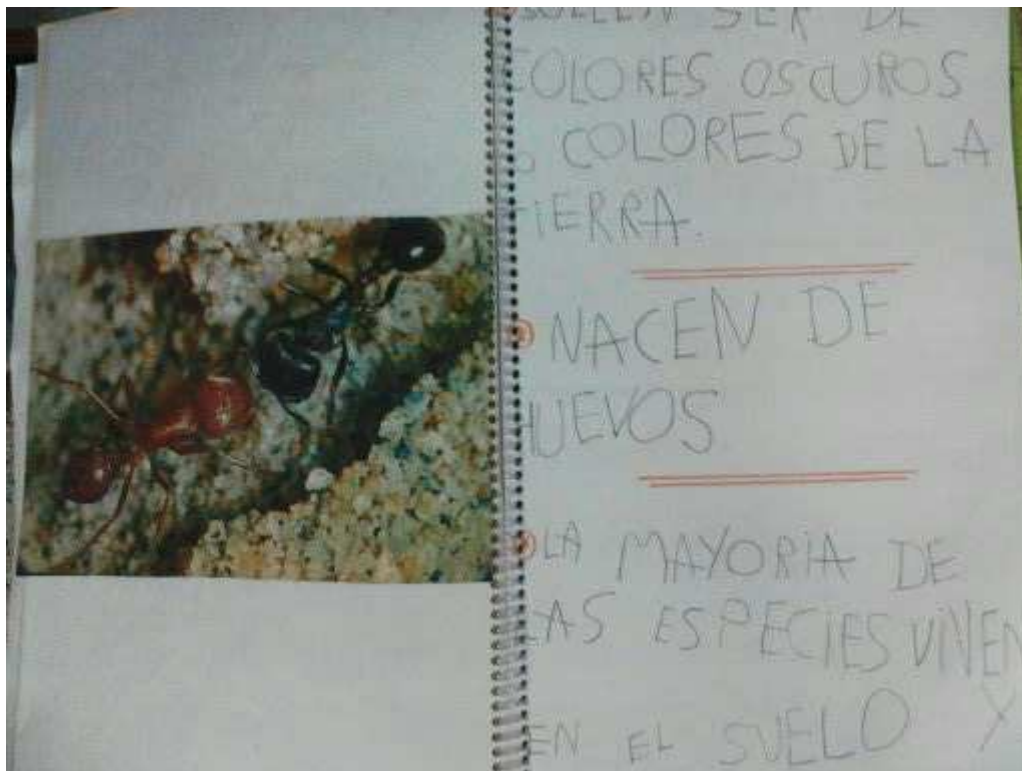 SUELEN SER DE
COLORES OSCUROS
O COLORES DE LA
TIERRA.
NACEN DE
HUEVOS
LA MAYORIA DE
LAS ESPECIES VIVEN
EN EL SUELO Y